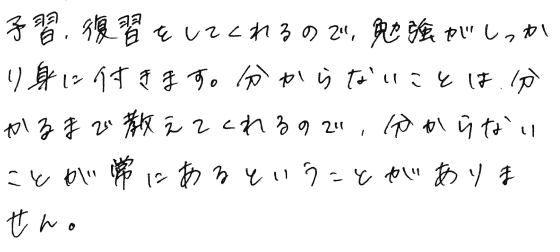 予習、復習をしてくれるので、勉強がしっか
り身に付きます。分からないことは、分
かるまで教えてくれるので、分からない
ことが常にあるということがありま
せん。